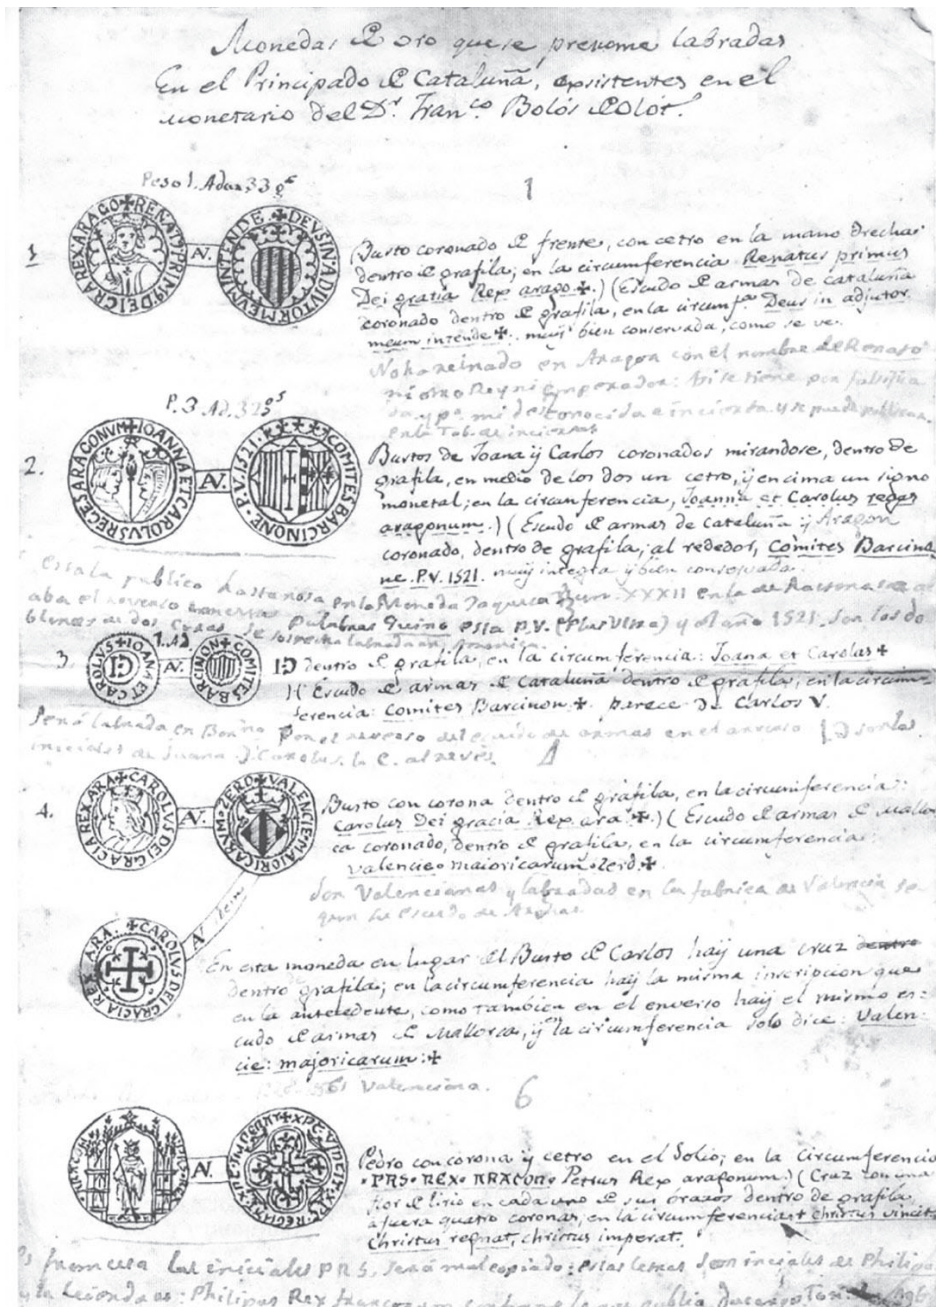 Monedas de oro que se presume labradas
En el Principado de Cataluña, existentes en el
monetario del Dr. Franco. Bolós de Olot.
Peso 1. Ad. 33
1
1
RENATUS PRIM9 DEI GRA REX ARAGO
AV.
DEUS IN ADIVTOR MEUM INTENDE
Busto coronado de frente, con cetro en la mano drecha
dentro de grafila; en la circumferencia Renatus primus
Dei gratia Rex arago ✠.) (Escudo de armas de cataluña
coronado dentro de grafila, en la circumfa. Deus in adjutor
meum intende ✠. muy bien conservada, como se ve.
No ha reinado en Aragon con el nombre de Renato
ni otro Rey ni emperador:
desconocida e incierta y se puede publicar
en la Tab. de inciertas
P. 3 Ad. 32
2.
IOANA ET CAROLVS RECES ARAGONVM
AV.
COMITES BARCINONE · P.V. 1521.
Bustos de Joana y Carlos coronados mirandose, dentro de
grafila, en medio de los dos un cetro, y encima un signo
monetal; en la circunferencia, Joanna et Carolus reges
aragonum.) (Escudo de armas de Cataluña y Aragon
coronado, dentro de grafila; al rededor, Comites Barcino
ne. P.V. 1521. muy integra y bien conservada.
Esta la publico Lastanosa en la Moneda Jaquesa Num. XXXII en la de
aba el reverso P.V. (Plus Ultra) y el año 1521. son los do
blones de dos caras
3.
1. Ad.
IOANA ET CAROLVS
AV.
COMITES BARCINON
dentro de grafila, en la circumferencia: Joana et Carolus ✠
)( Escudo de armas de Cataluña dentro de grafila, en la circum-
ferencia: Comites Barcinon ✠. parece de Carlos V.
Será labrada en por el reverso del escudo de armas en el anverso son las
iniciales de Juana y Carolus. la C. al revés.
4.
CAROLVS DEI GRACIA REX ARA
AV.
VALENCIE MAIORICARVM · ZERD
Busto con corona dentro de grafila, en la circumferencia:
Carolus Dei gracia Rex ara ✠.) (Escudo de armas de Mallor
ca coronado, dentro de grafila, en la circumferencia:
valencie · maioricarum · Zerd. ✠
Son Valencianas y labradas en la fabrica de Valencia se
gun su escudo de Armas.
AV. item
CAROLVS DEI GRACIA REX ARA.
En esta moneda en lugar del Busto de Carlos haÿ una cruz
dentro grafila; en la circumferencia haÿ la misma inscripcion que
en la antecedente, como tambien en el enverso haÿ el mismo es-
cudo de armas de Mallorca, y en la circumferencia solo dice: Valen-
cie: majoricarum: ✠
Valenciana.
6
AV.
Pedro con corona y cetro en el Solio; en la circumferencia
· PRS · REX · ARAGON · Petrus Rex aragonum.) (Cruz con una
flor de lirio en cada uno de sus brazos dentro de grafila,
afuera quatro coronas; en la circumferencia ✠ christus vincit,
Christus regnat, christus imperat.
Es francesa las iniciales PRS. será mal copiado: estas letras son iniciales de Philipus
y la leienda es: Philipus Rex francorum